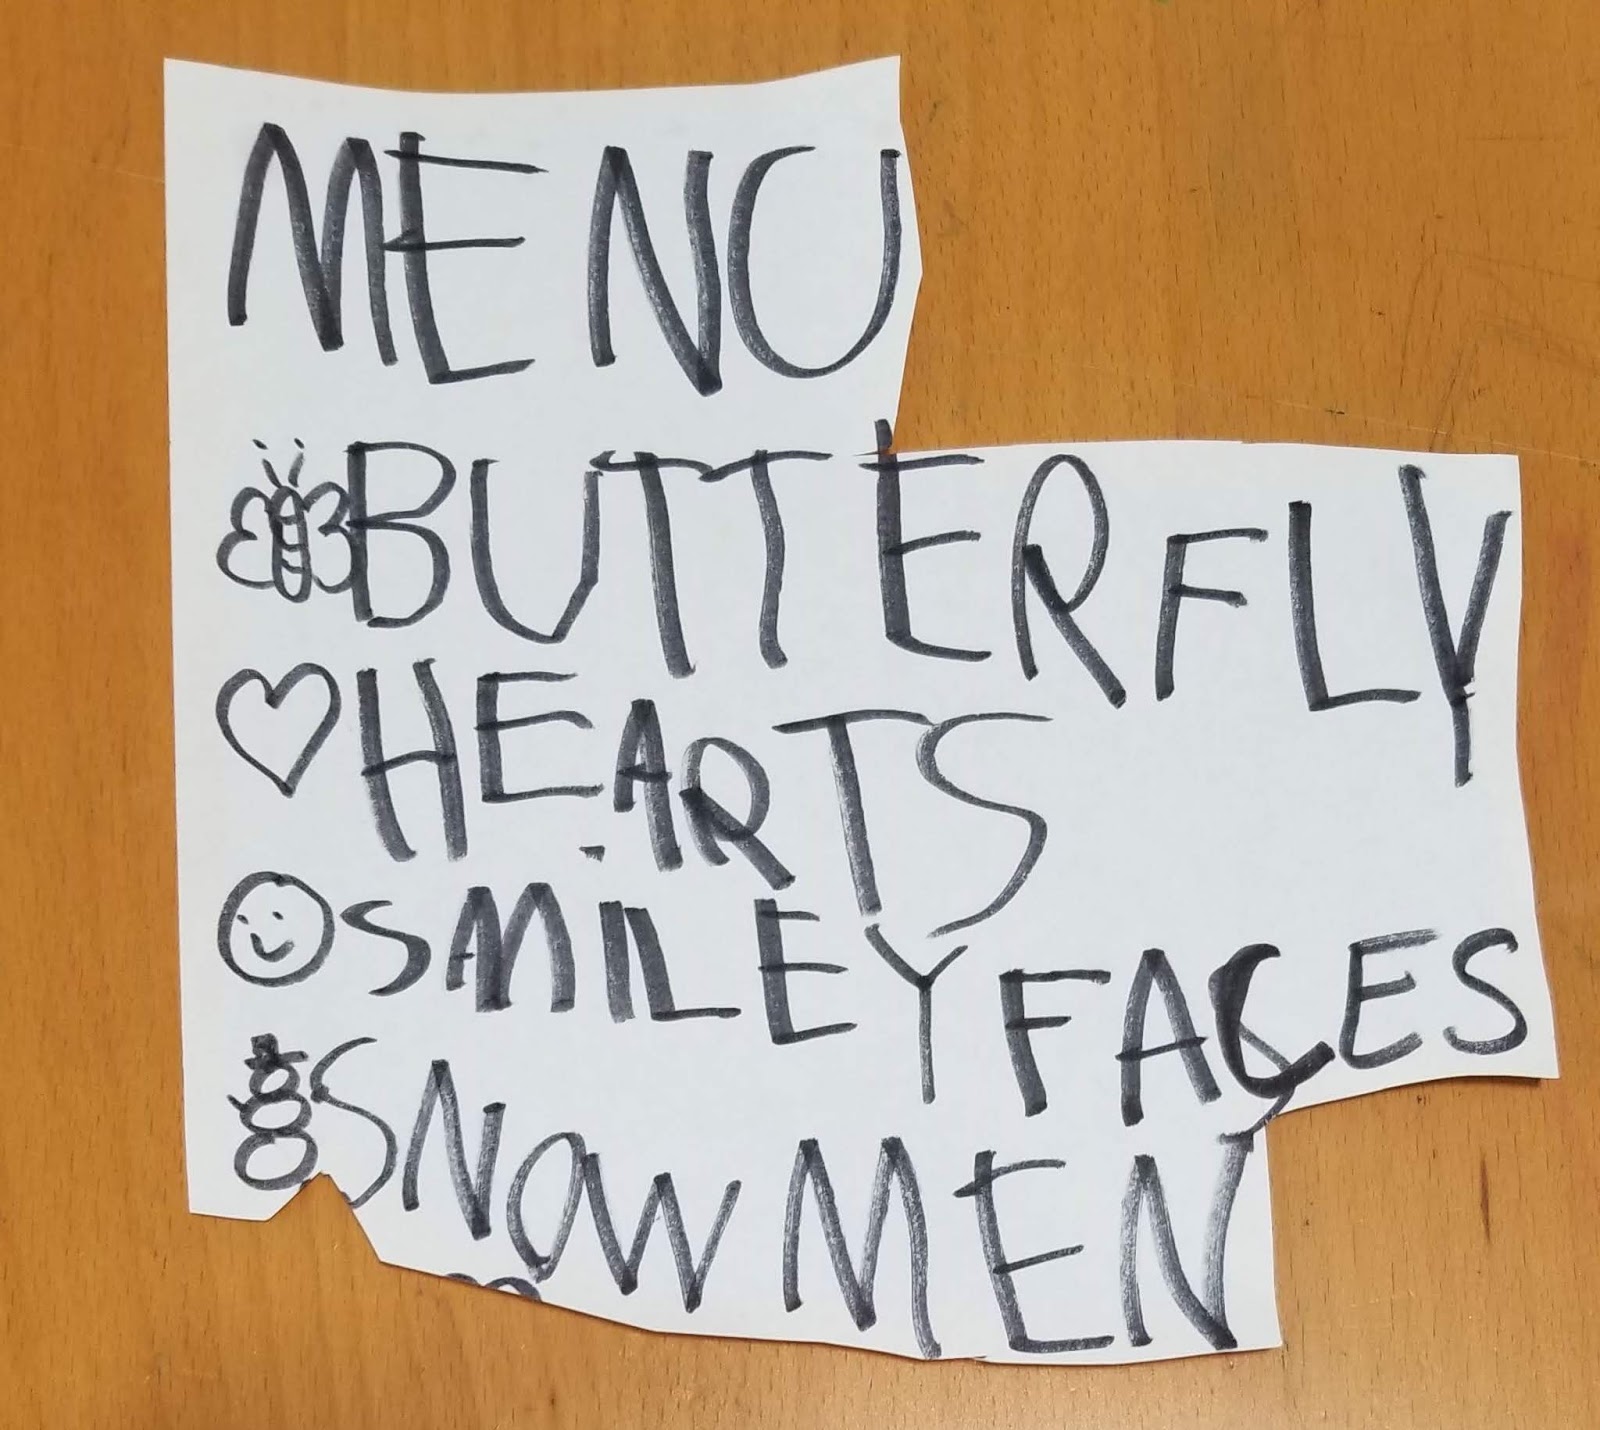 MENU
BUTTERFLY
HEARTS
SMILEY FACES
SNOWMEN